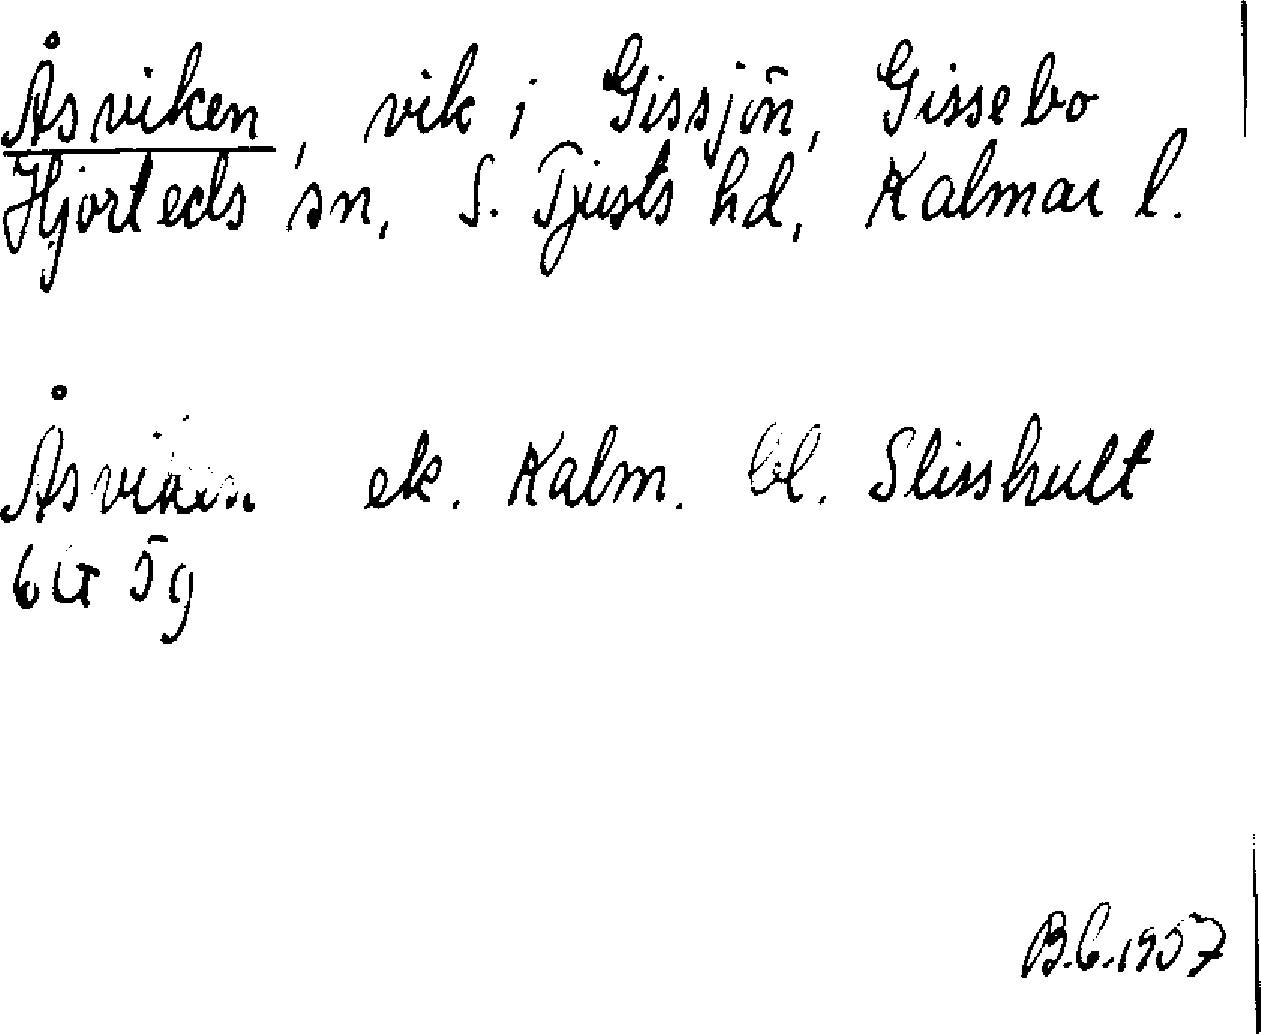 Åsviken, vik i Gissjön, Gissebo
Hjorteds sn, S. Tjusts hd, Kalmar l.
Åsviken ek. Kalm. bl. Slisshult
5g
B.C. 1957